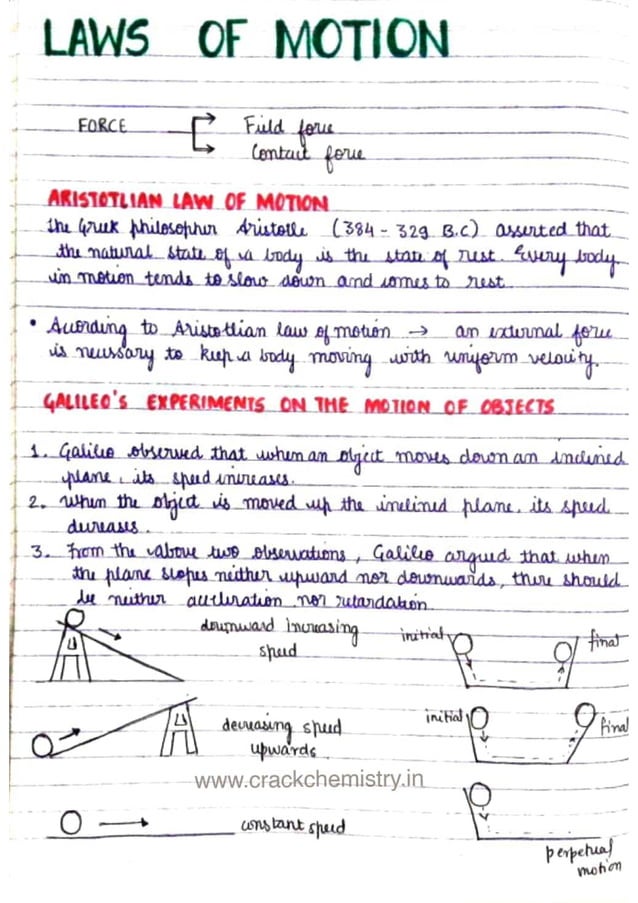 LAWS OF MOTION
FORCE
Field force
Contact force
ARISTOTLIAN LAW OF MOTION
the Greek philosopher Aristotle (384 - 329 B.C) asserted that
the natural state of a body is the state of rest. Every body
in motion tends to slow down and comes to rest
• According to Aristotlian law of motion → an external force
is necessary to keep a body moving with uniform velocity.
GALILEO'S EXPERIMENTS ON THE MOTION OF OBJECTS
1. Galileo observed that when an object moves down an inclined
plane, its speed increases.
2. When the object is moved up the inclined plane, its speed
decreases.
3. From the above two observations, Galileo argued that when
the plane slopes neither upward nor downwards, there should
be neither accleration nor retardation
downward increasing
speed
initial
final
decreasing speed
upwards
initial
final
www.crackchemistry.in
constant speed
perpetual
motion